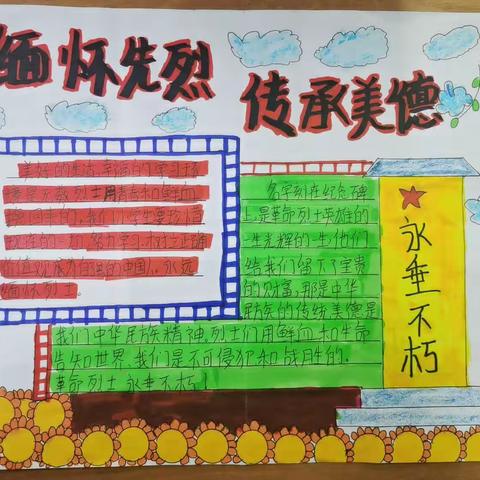 缅怀先烈
传承美德
美好的生活,幸福的学习环
境是无数烈士用青春和鲜血
换回来的,我们小学生要珍惜
现在的一切,努力学习,树立正确
价值观,做自强的中国人,永远
缅怀烈士。
名字刻在纪念碑
上,是革命烈士英雄的
一生光辉的一生他们
给我们留下了宝贵
的财富,那是中华
民族的传统美德是
我们中华民族精神,烈士们用鲜血和生命
告知世界,我们是不可侵犯和战胜的.
革命烈士永垂不朽!
永垂不朽